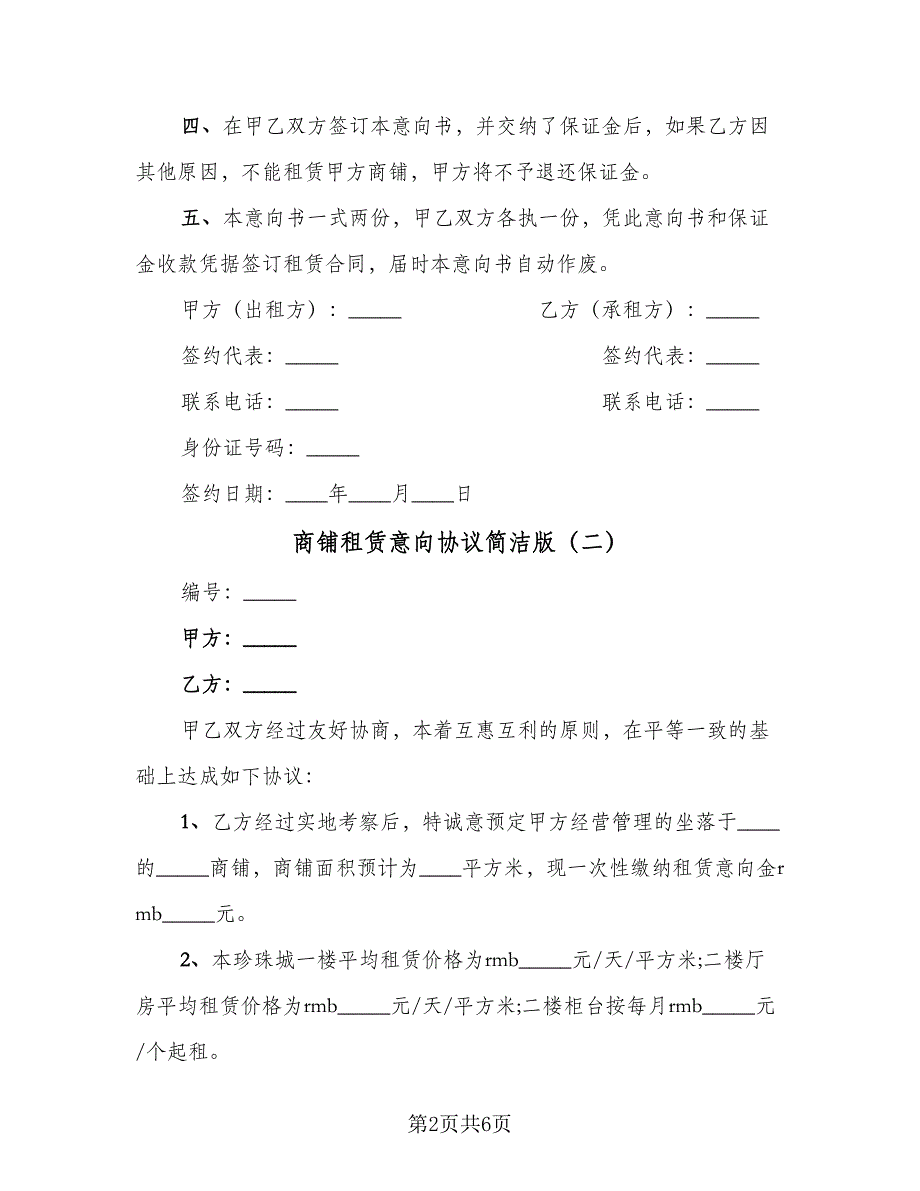 四、在甲乙双方签订本意向书，并交纳了保证金后，如果乙方因
其他原因，不能租赁甲方商铺，甲方将不予退还保证金。
五、本意向书一式两份，甲乙双方各执一份，凭此意向书和保证
金收款凭据签订租赁合同，届时本意向书自动作废。
甲方（出租方）：_____ 乙方（承租方）：_____
签约代表：_____ 签约代表：_____
联系电话：_____ 联系电话：_____
身份证号码：_____
签约日期：____年____月____日
商铺租赁意向协议简洁版（二）
编号：_____
甲方：_____
乙方：_____
甲乙双方经过友好协商，本着互惠互利的原则，在平等一致的基
础上达成如下协议：
1、乙方经过实地考察后，特诚意预定甲方经营管理的坐落于____
的_____商铺，商铺面积预计为____平方米，现一次性缴纳租赁意向金r
mb_____元。
2、本珍珠城一楼平均租赁价格为rmb_____元/天/平方米;二楼厅
房平均租赁价格为rmb_____元/天/平方米;二楼柜台按每月rmb_____元
/个起租。
第2页共6页